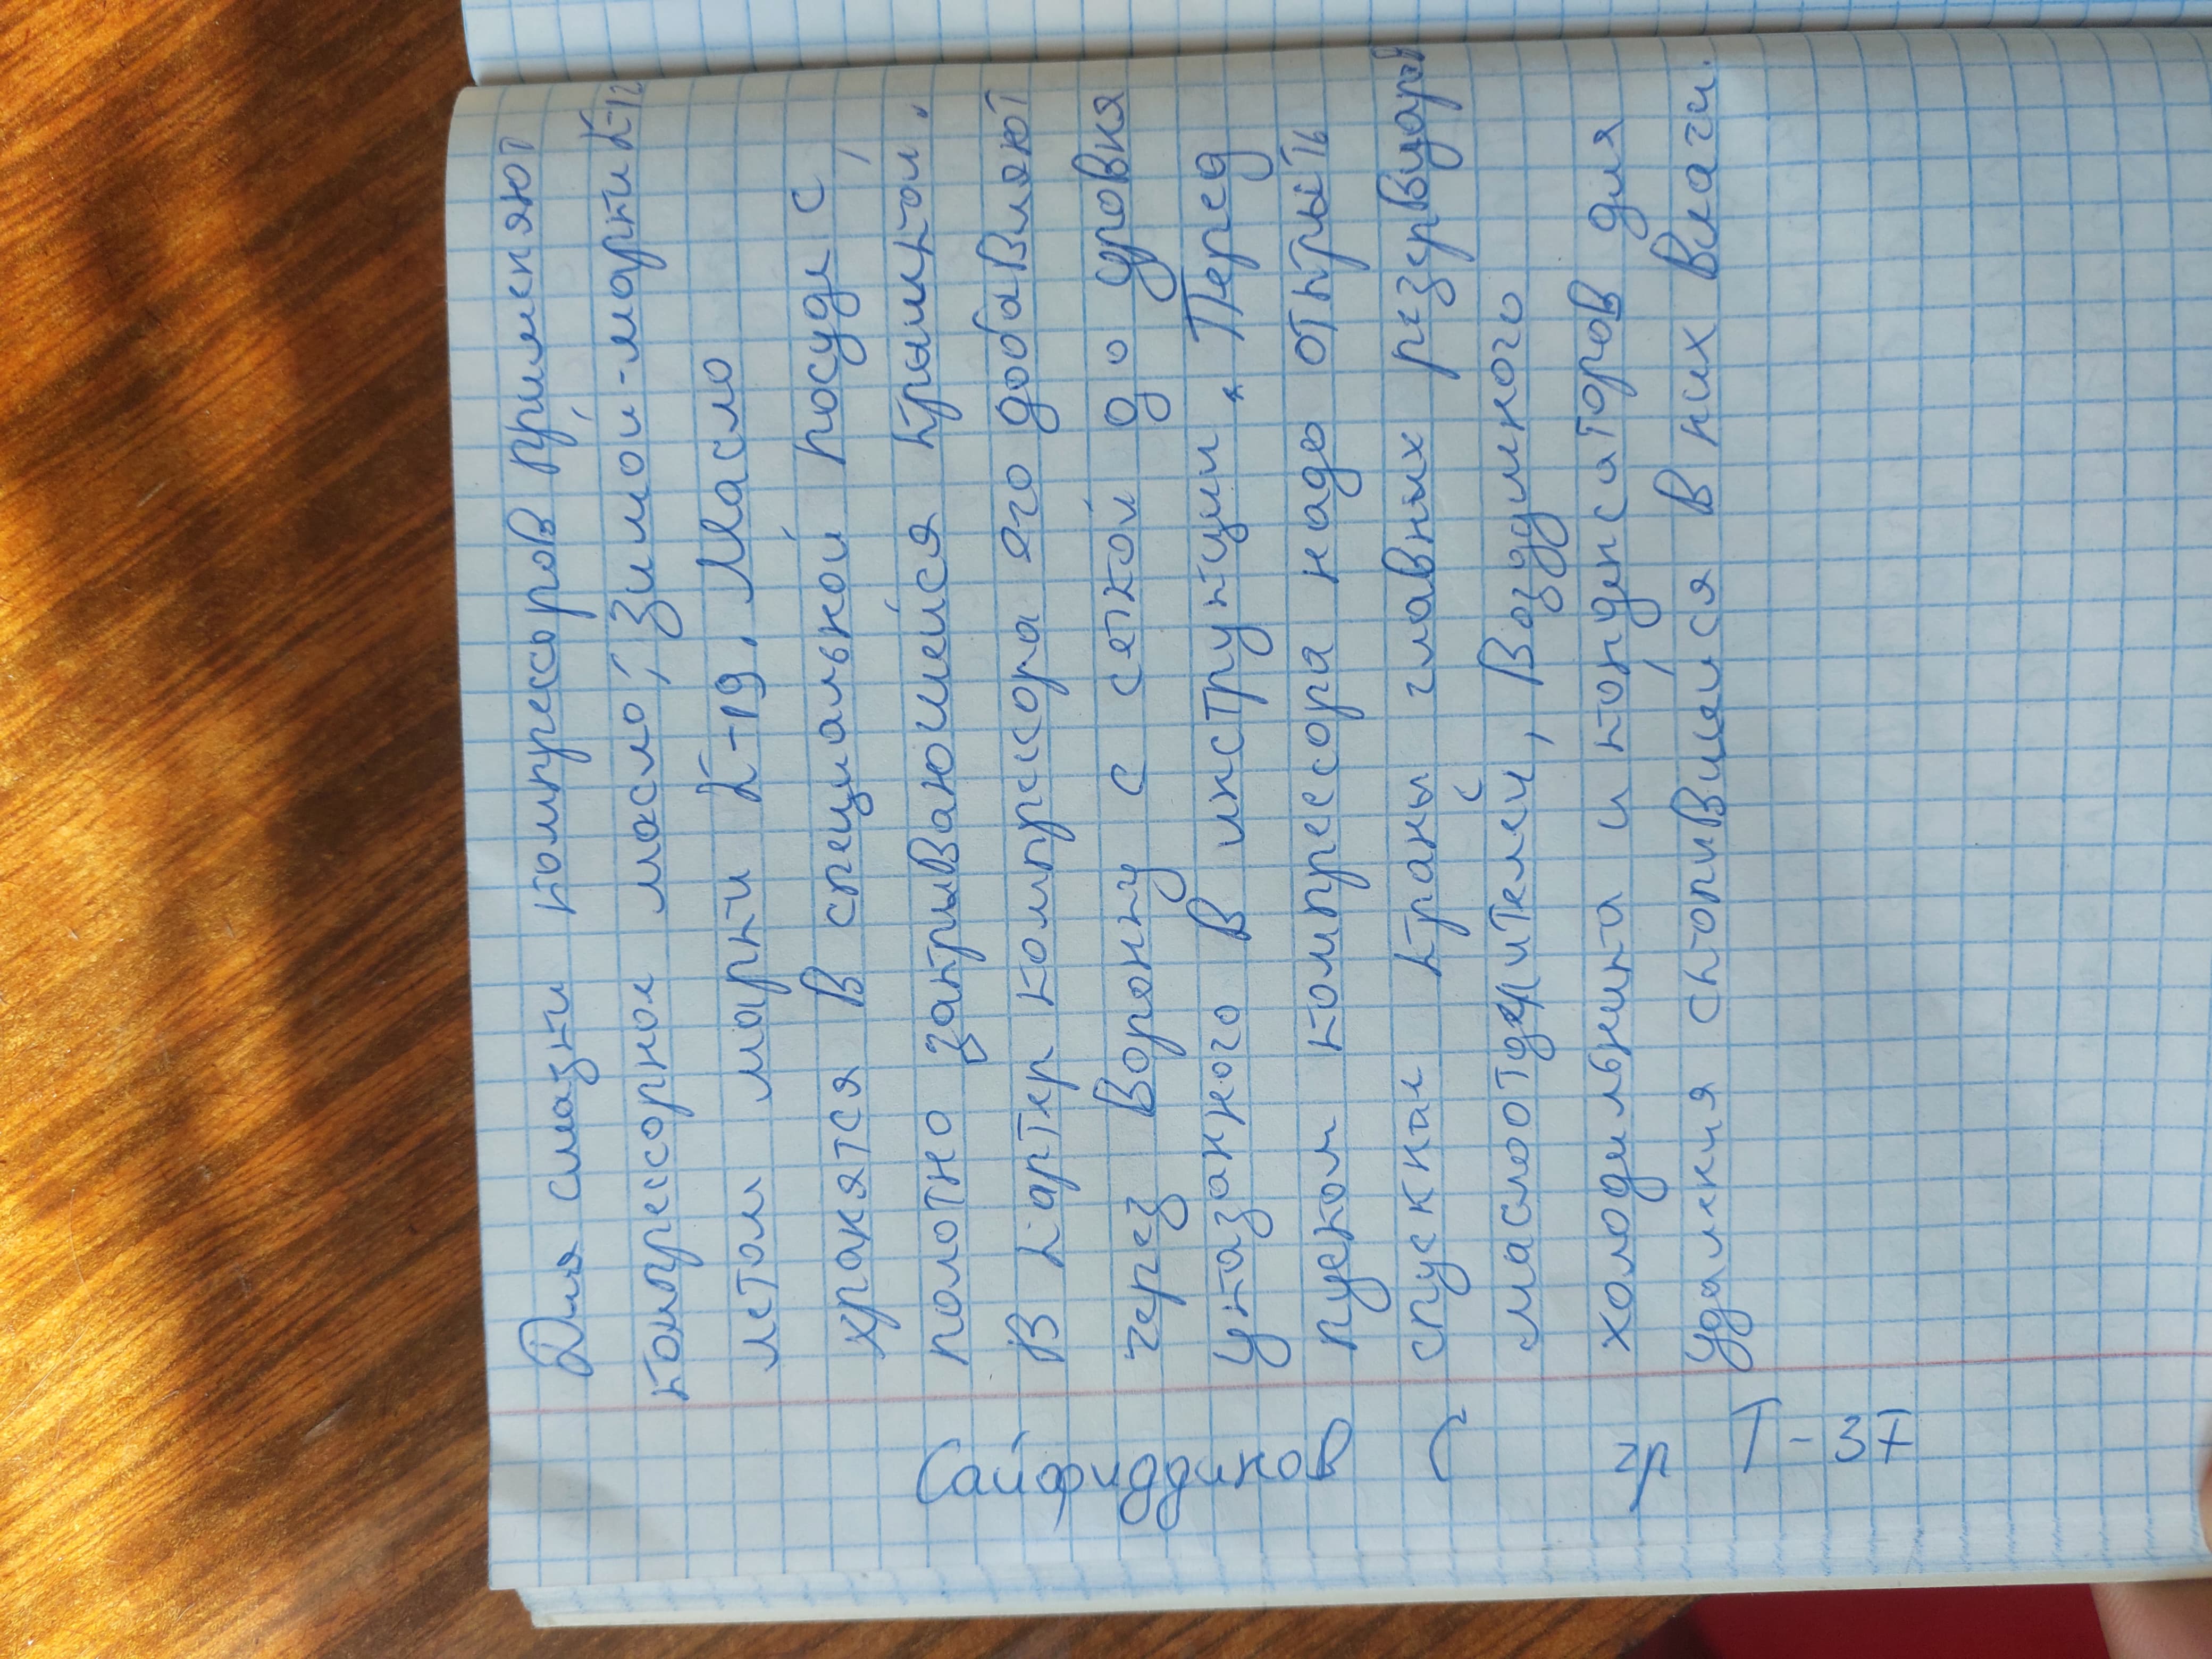 Для смазки компрессоров применяют
компрессорное масло; зимой-марки К-12
летом марки К-19. Масло
хранятся в специальной посуде с
полотно закрывающейся крышкой.
В картер компрессора его добавляют
через воронку с сеткой до уровня
указанного в инструкции. Перед
пуском компрессора надо открыть
спускные краны главных резервуаров
маслоотделителей, воздушного
холодильника и конденсаторов для
удаления скопившейся в них влаги.
Сайфиддинов С гр Т-37